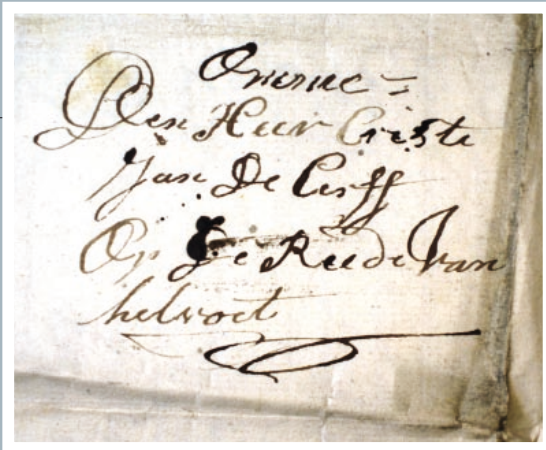 Omme =
Den Heer Criste
Jan De Cerff
Op De Reede Van
helvoet